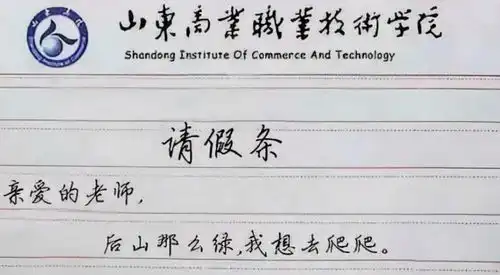 山東商業職業技術学院
Shandong Institute Of Commerce And Technology
请假条
亲爱的老师,
后山那么绿,我想去爬爬。